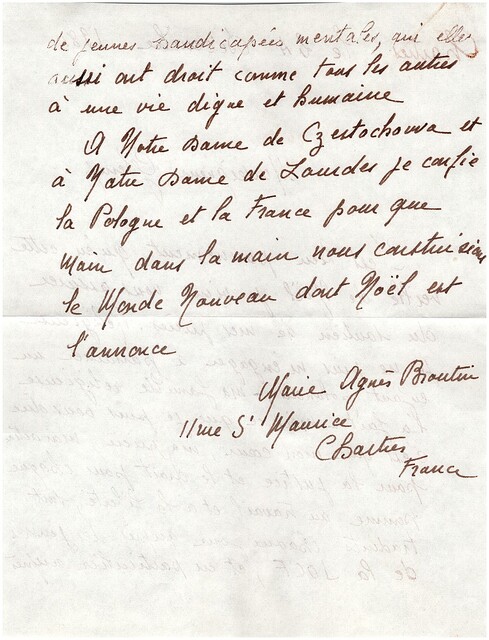 de jeunes handicapées mentales, qui elles
aussi ont droit comme tous les autres
à une vie digne et humaine
A Notre Dame de Czestochowa et
à Notre Dame de Lourdes je confie
la Pologne et la France pour que
main dans la main nous construisions
le Monde Nouveau dont Noël est
l'annonce
Marie Agnès Broutin
11 rue St Maurice
Chartres
France